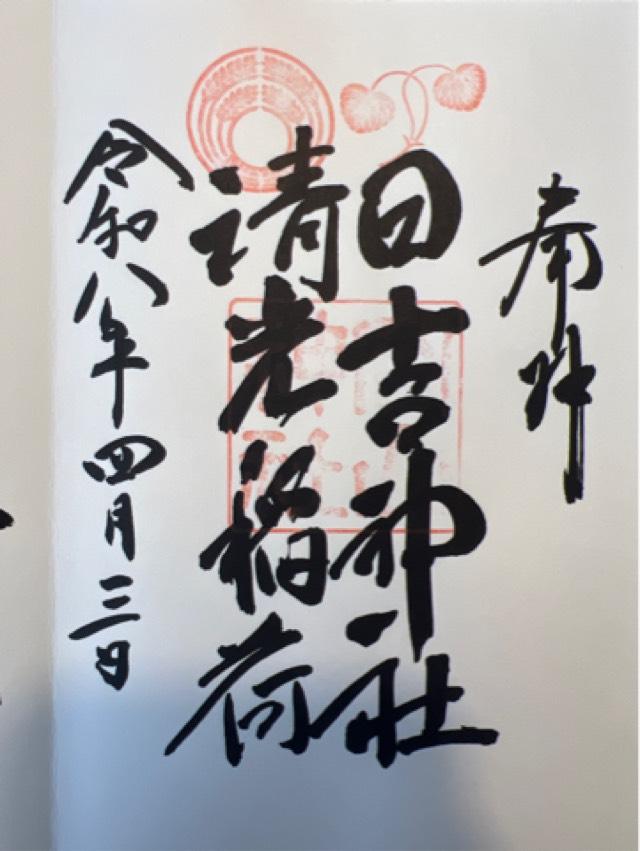 奉拝
日吉神社
清光稲荷
令和八年四月三日